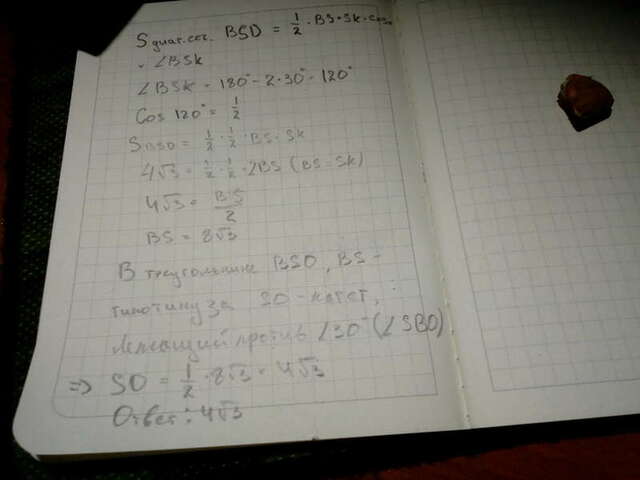 S диаг. сег. BSD = 1/2 · BS · SK · cos
· ∠BSK
∠BSK = 180° - 2·30° = 120°
Cos 120° = 1/2
SBSD = 1/2 · 1/2 · BS · SK
4√3 = 1/2 · 1/2 · 2BS (BS = SK)
4√3 = BS/2
BS = 8√3
В треугольнике BSO, BS -
гипотинуза SO - катет,
лежащий против ∠30° (∠SBO)
=> SO = 1/2 · 8√3 = 4√3
Ответ: 4√3